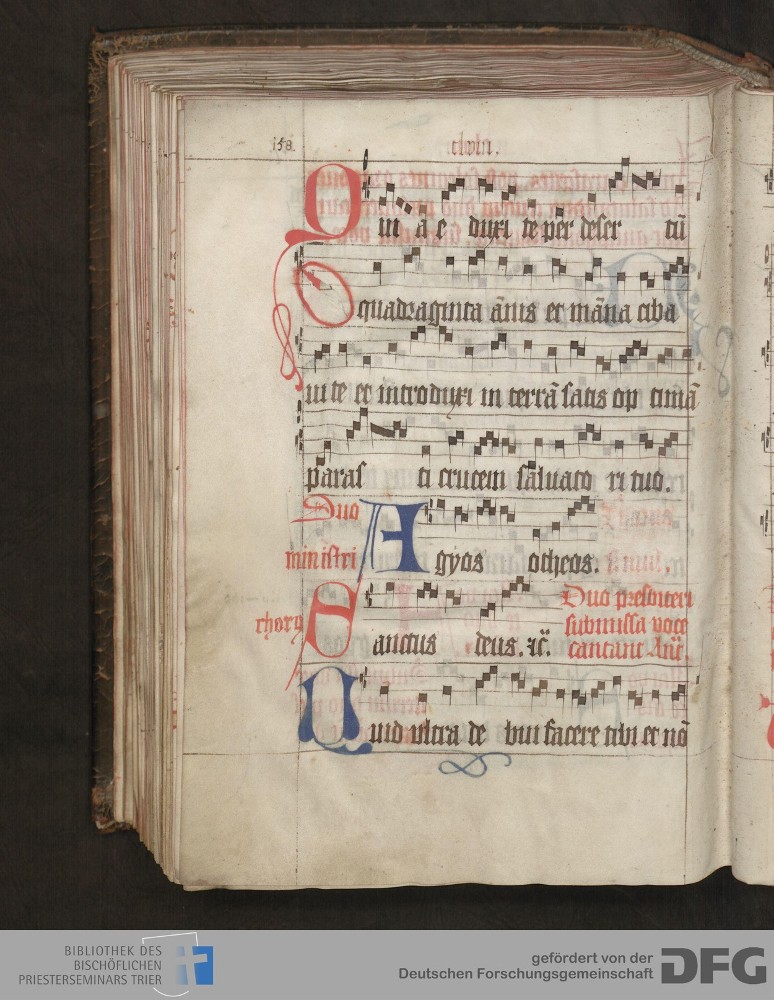 158.
Quia eduxi te per deser tū
quadraginta ānis et māna ciba
ui te et introduxi in terrā satis op timā
paras ti crucem saluato ri tuo.
Duo
ministri
Agyos otheos.
chorꝰ
Sanctus deus. ꝛc̄.
Duo presbiteri
submissa voce
cantant Anē.
Quid vltra de bui facere tibi et nō
BIBLIOTHEK DES
BISCHÖFLICHEN
PRIESTERSEMINARS TRIER
gefördert von der
Deutschen Forschungsgemeinschaft
DFG